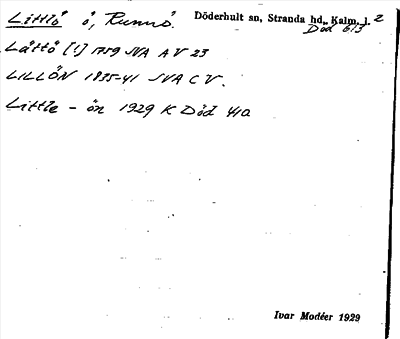 Littlö ö, Runnö. Döderhult sn, Stranda hd, Kalm. l. 2
Död 613
Låttö [!] 1759 JVA A V 23
LILLÖN 1835-41 JVA C V.
Little-ön 1929 K Död 410
Ivar Modéer 1929